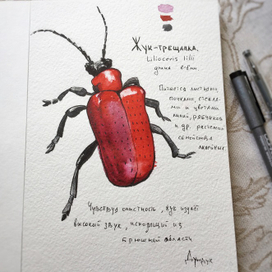 Жук-трещалка.
Lilioceris lilii
длина 6-9мм
Питается листьями,
почками, стеблями
и цветами
лилий, рябчиков
и др. растений
семейства
лилейных.
Чувствуя опасность, жук издаёт
высокий звук, исходящий из
брюшной области